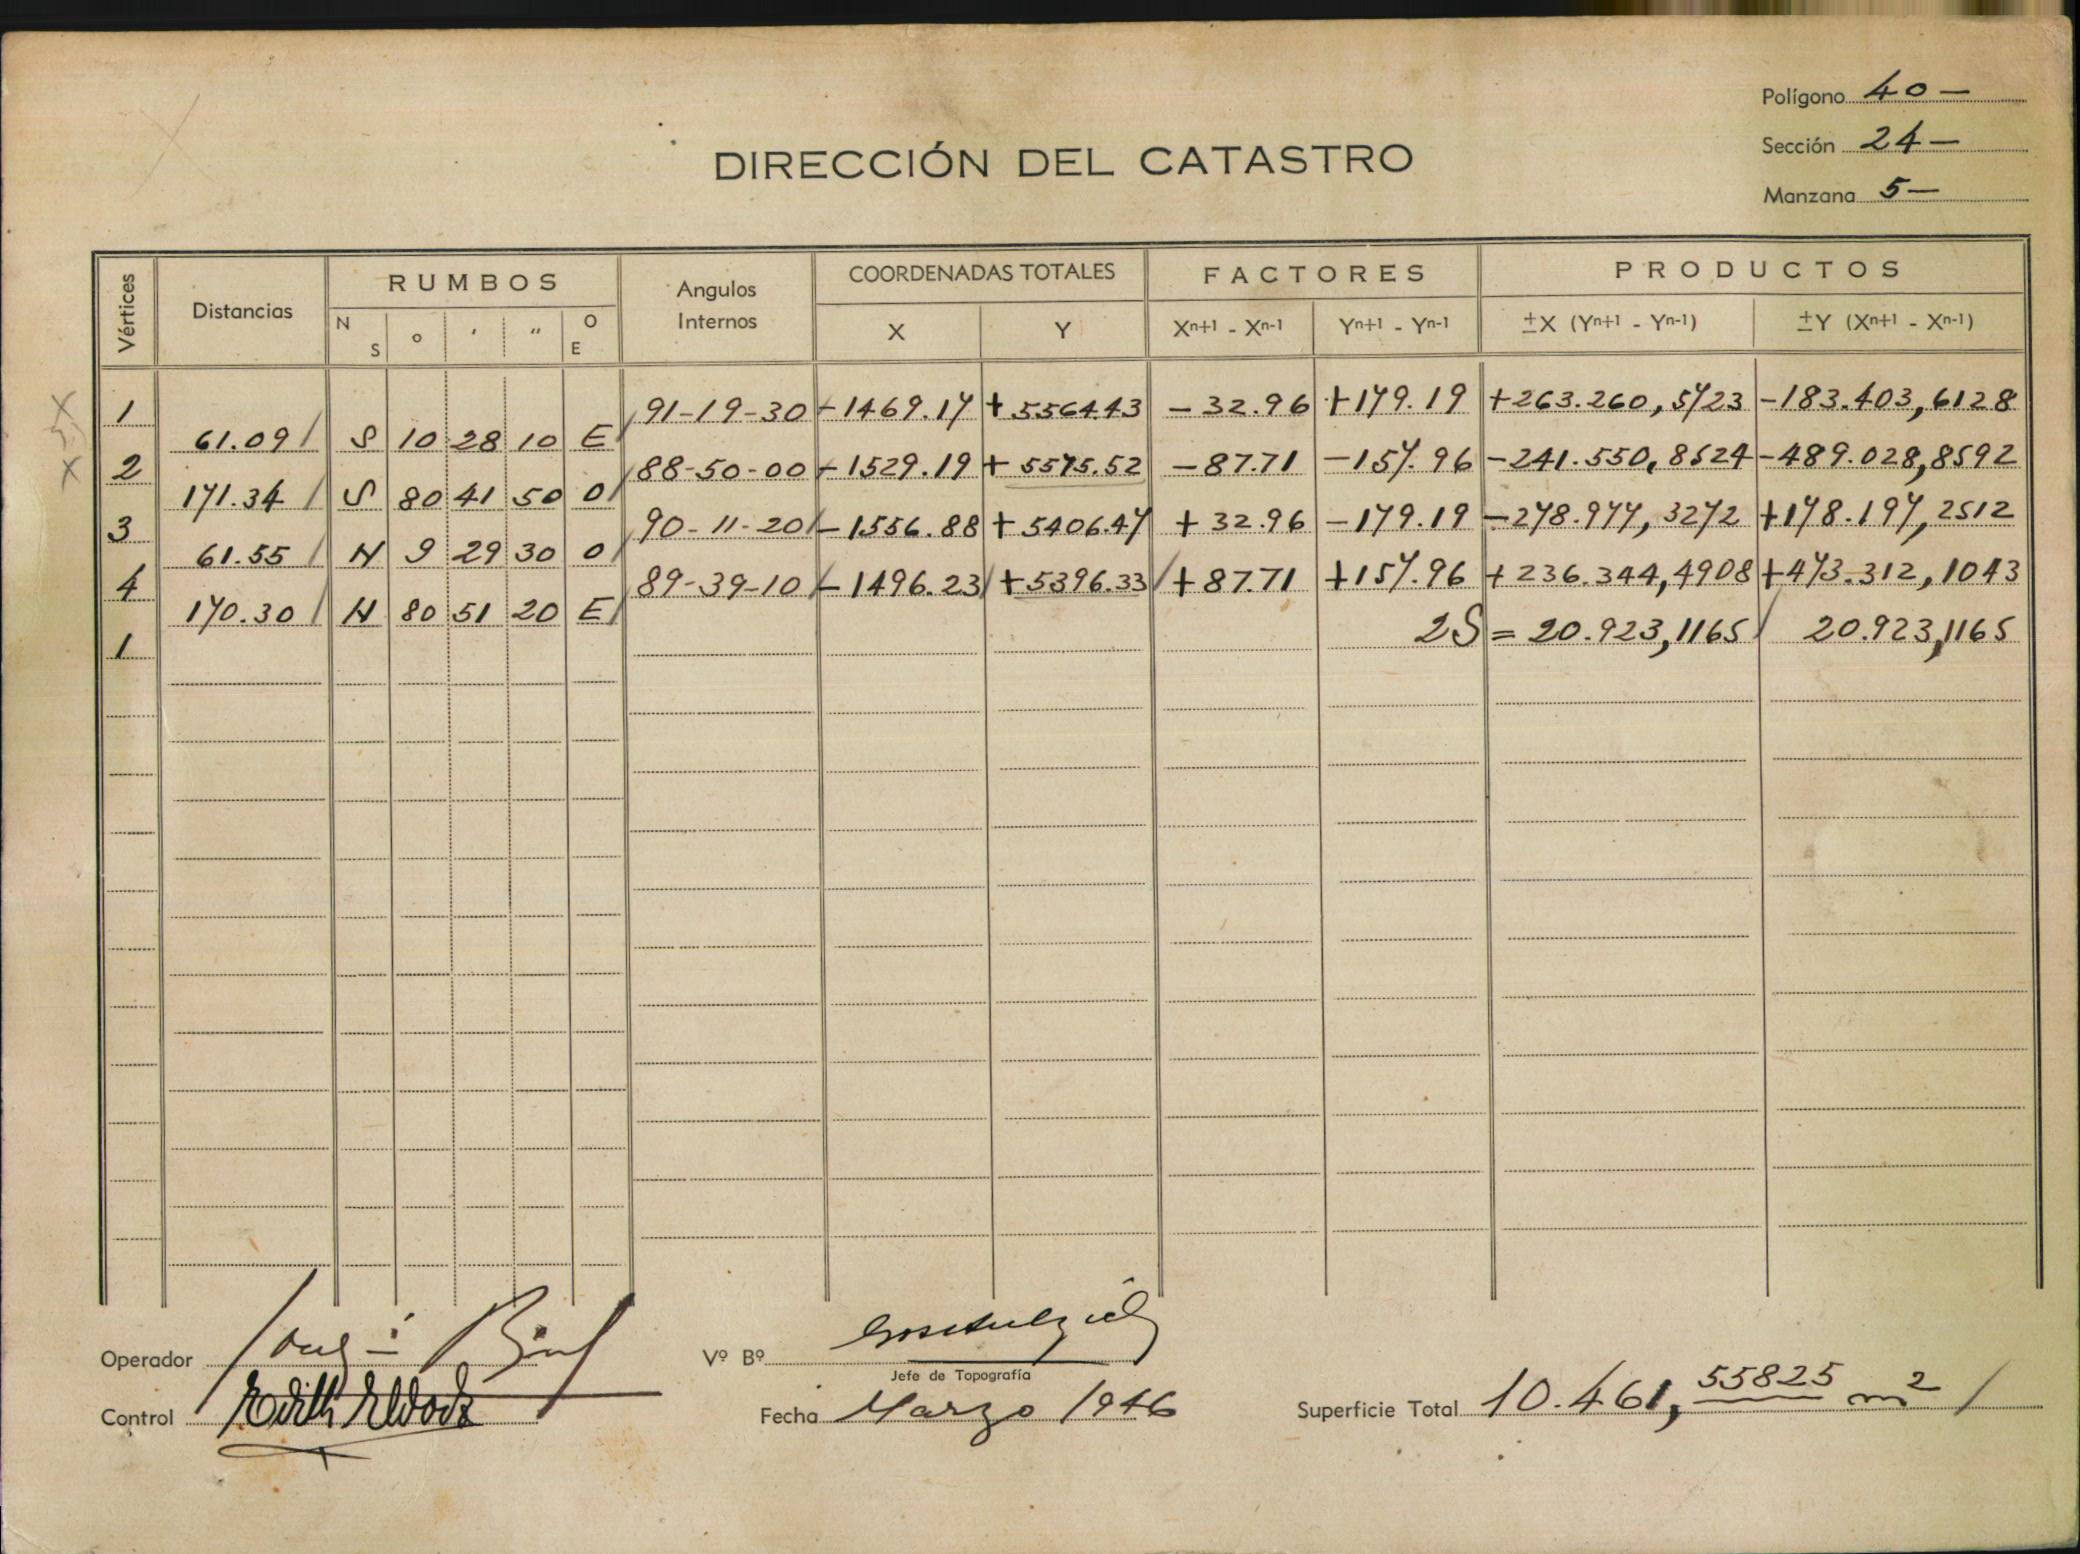 Polígono 40 —
Sección 24 —
Manzana 5 —
DIRECCIÓN DEL CATASTRO
Vértices Distancias RUMBOS Angulos Internos COORDENADAS TOTALES FACTORES PRODUCTOS
N S o ' " O E X Y Xn+1 - Xn-1 Yn+1 - Yn-1 ±X (Yn+1 - Yn-1) ±Y (Xn+1 - Xn-1)
1 91-19-30 -1469.17 +5564.43 -32.96 +179.19 +263.260,5723 -183.403,6128
61.09 S 10 28 10 E
2 88-50-00 -1529.19 +5575.52 -87.71 -157.96 -241.550,8524 -489.028,8592
171.34 S 80 41 50 O
3 90-11-20 -1556.88 +5406.47 +32.96 -179.19 -278.977,3272 +178.197,2512
61.55 N 9 29 30 O
4 89-39-10 -1496.23 +5396.33 +87.71 +157.96 +236.344,4908 +473.312,1043
170.30 N 80 51 20 E
2S = 20.923,1165 20.923,1165
1
Operador
Vº Bº
Jefe de Topografía
Control
Fecha Marzo 1946
Superficie Total 10.461,55825 m2